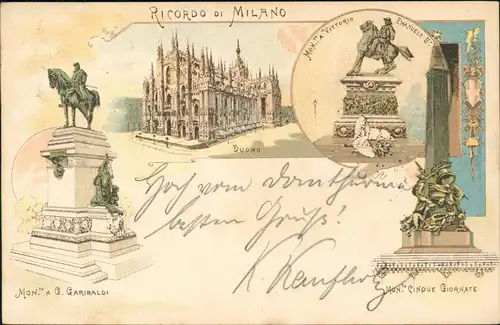 RICORDO DI MILANO
MON.TO A VITTORIO EMANUELE II.
DUOMO
Hoch vom Domthurme
besten Gruß!
K.
MON.TO A G. GARIBALDI
MON.TO CINQUE GIORNATE